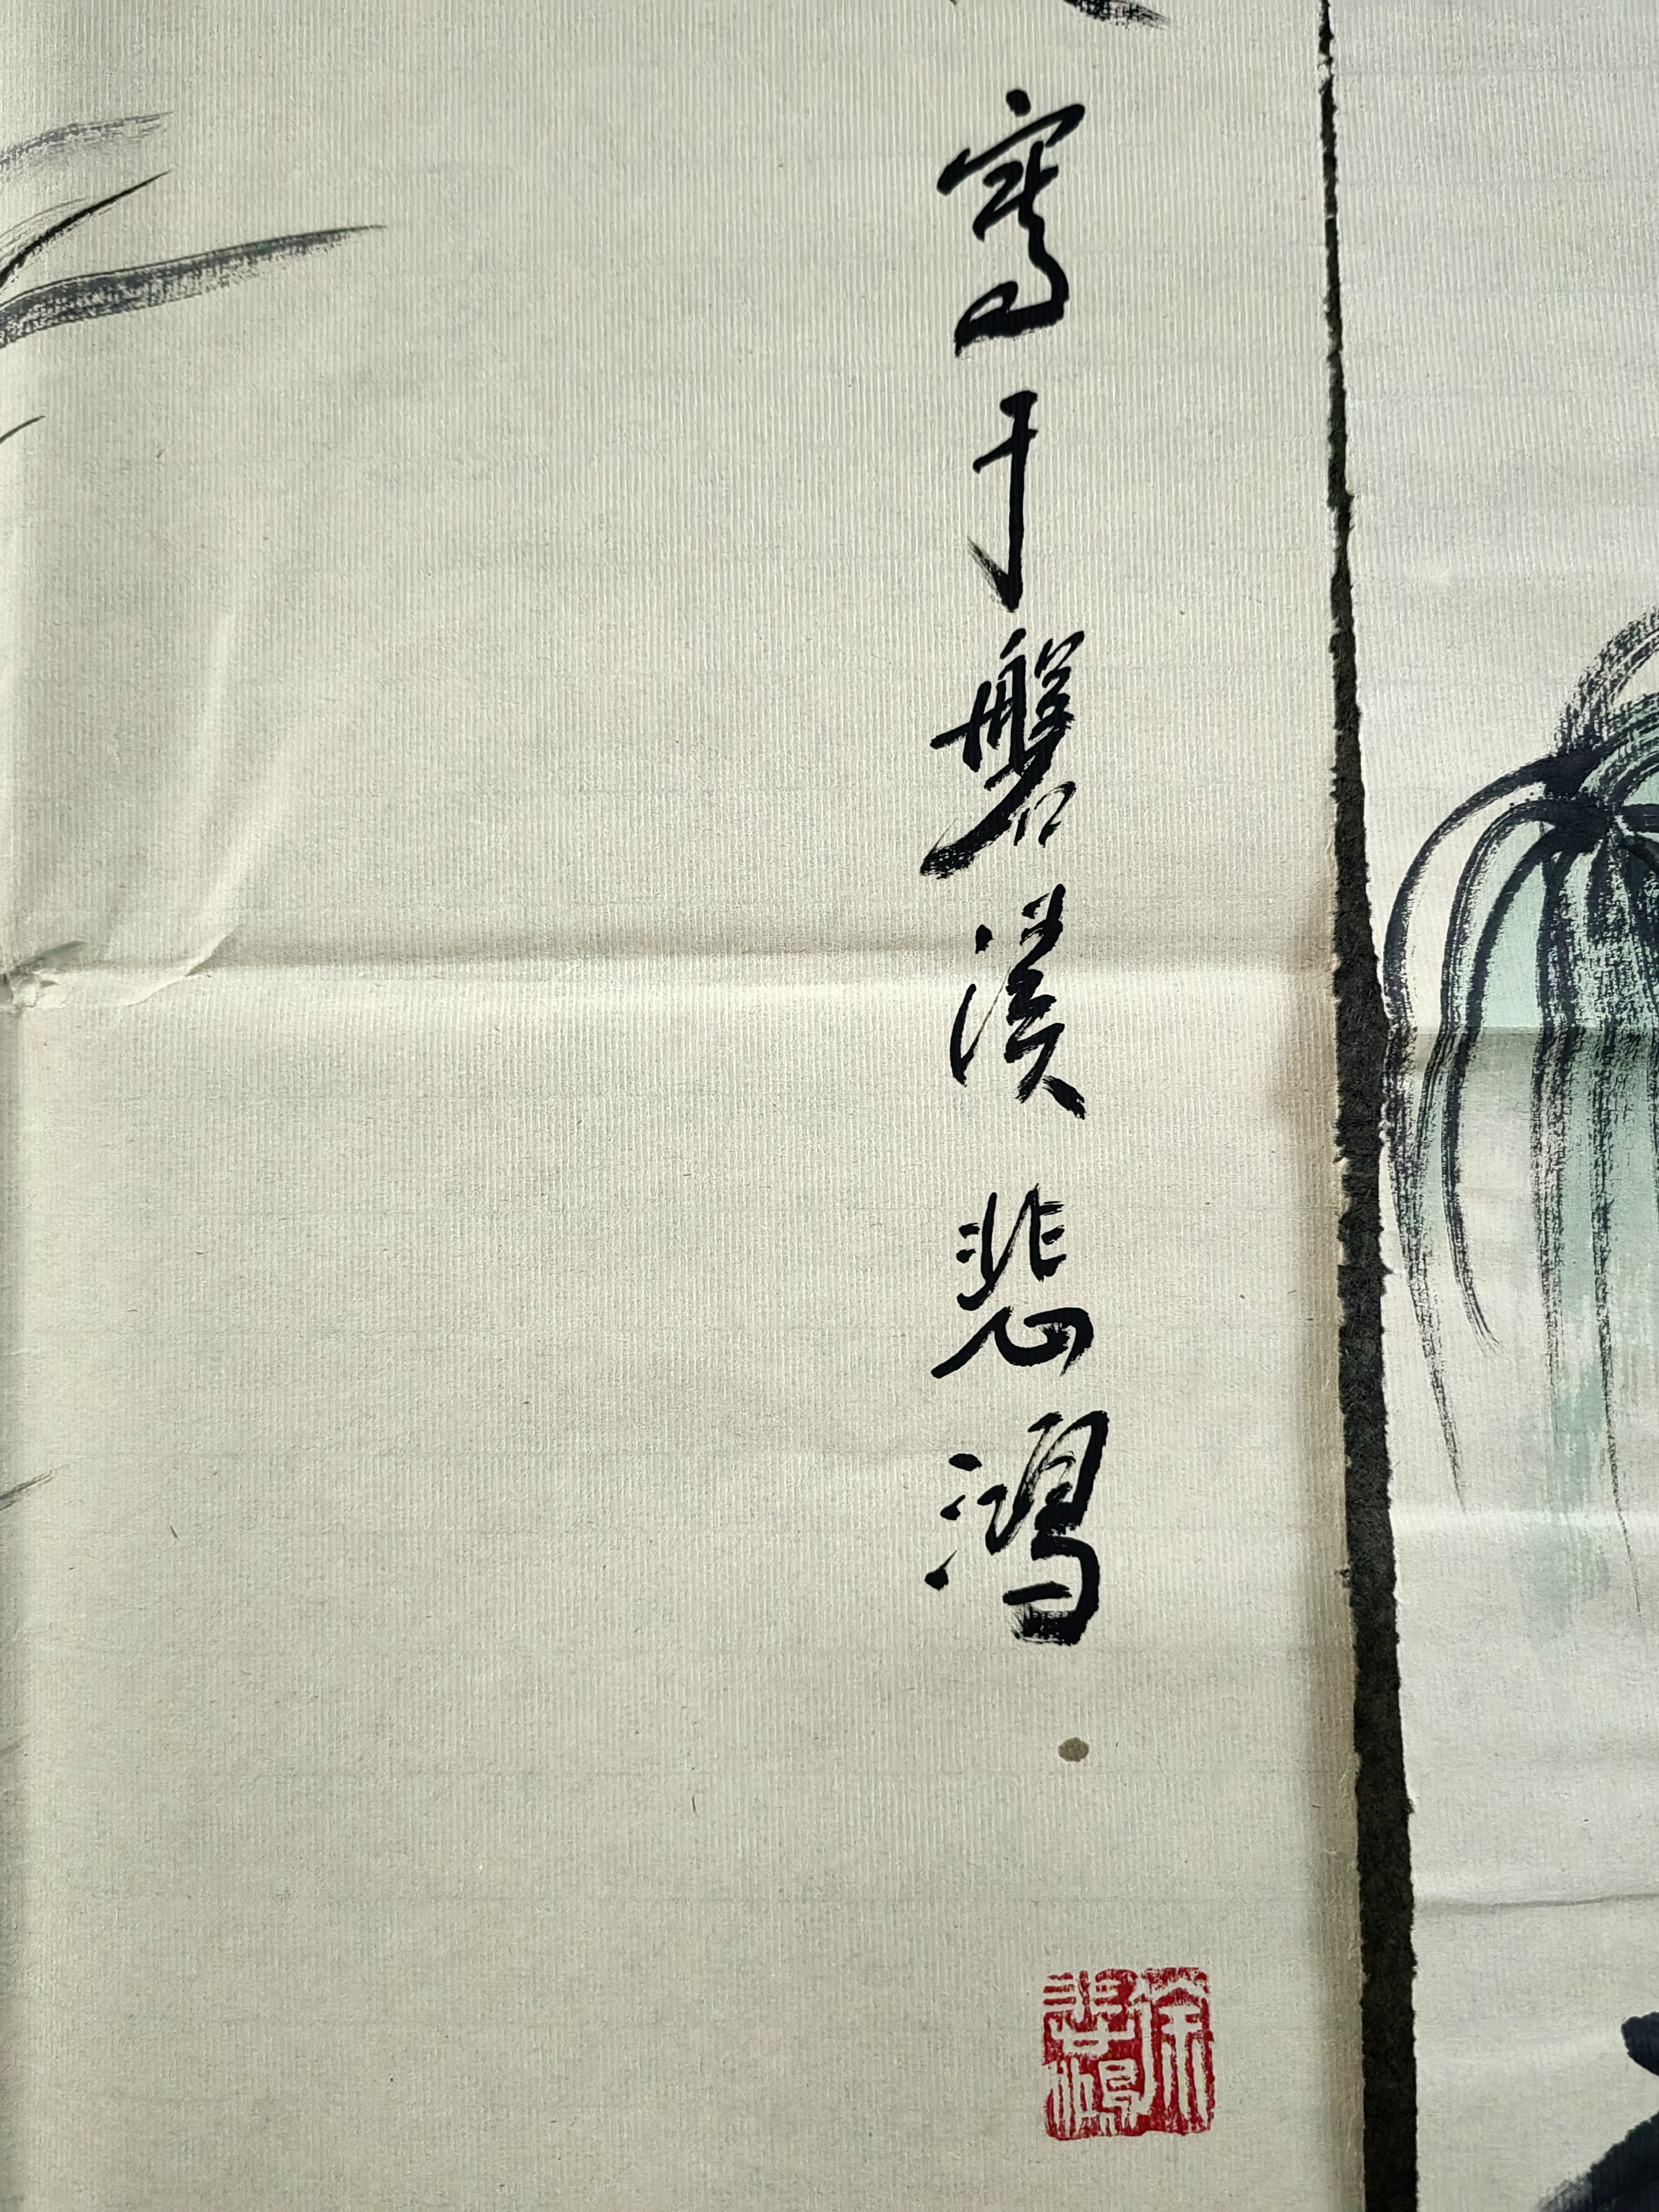 寫于磐溪悲鴻
徐悲鴻